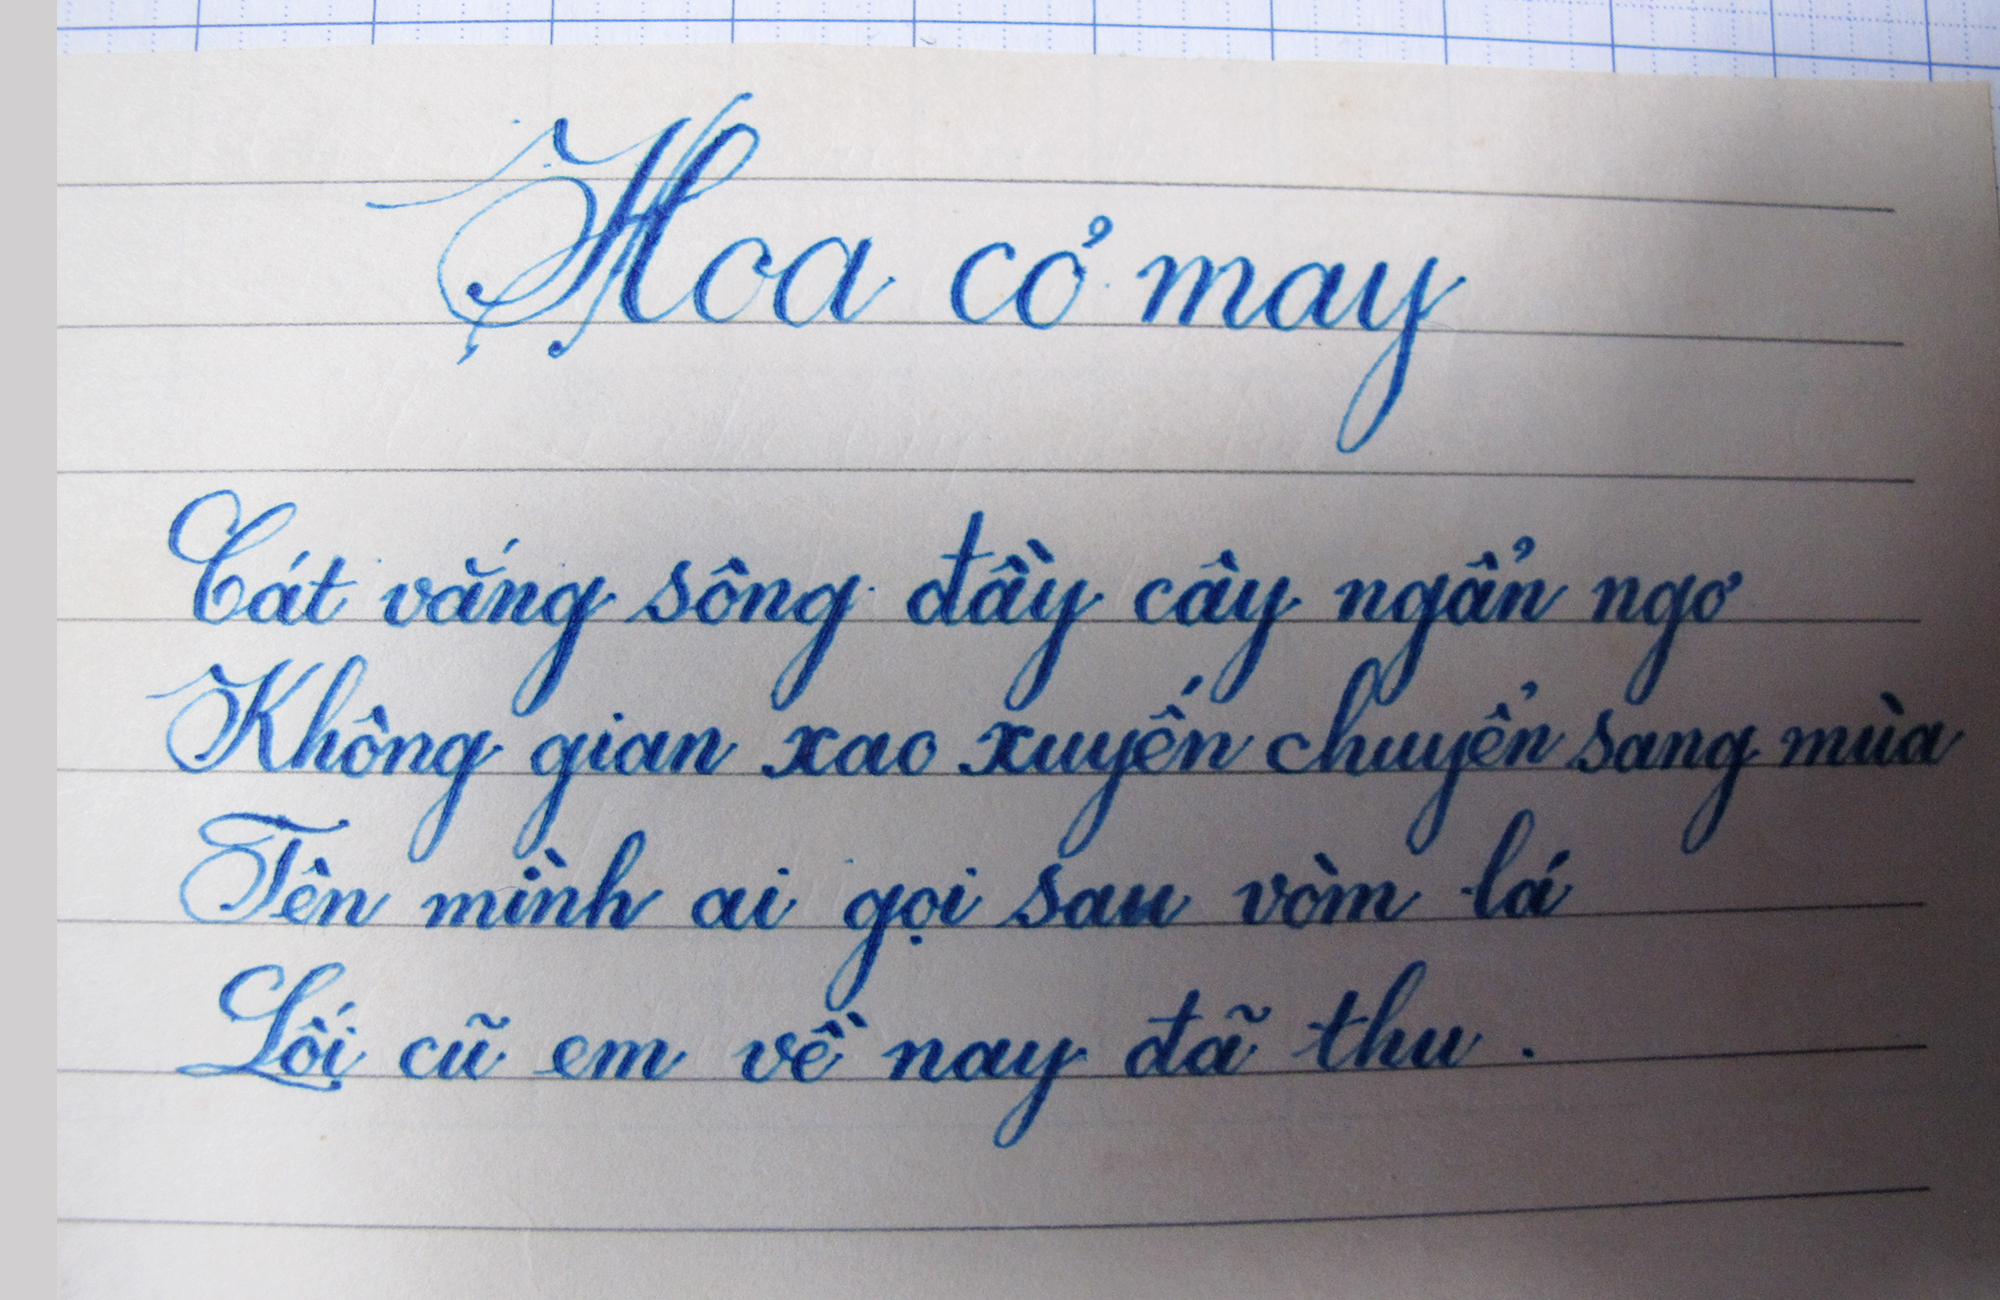 Hoa cỏ may
Cát vắng sông đầy cây ngẩn ngơ
Không gian xao xuyến chuyển sang mùa
Tên mình ai gọi sau vòm lá
Lối cũ em về nay đã thu.